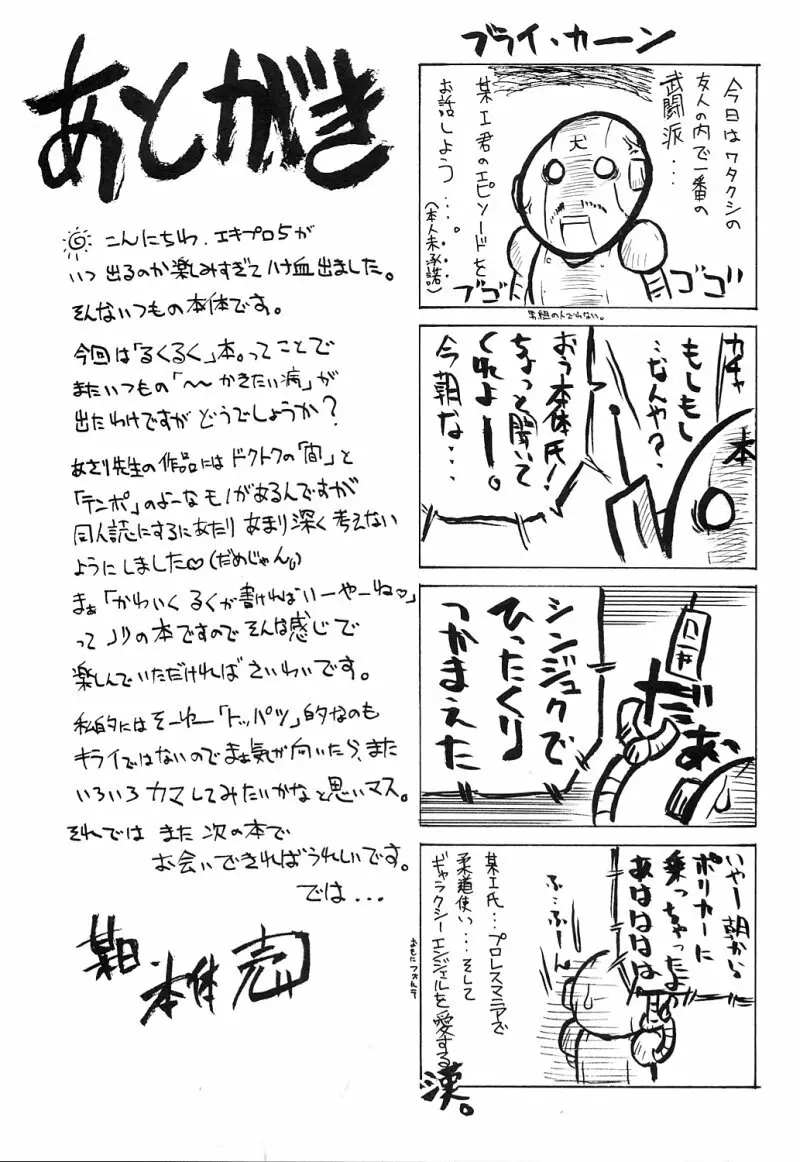 あとがき
こんにちわ、エキプロ5が
いつ出るのか楽しみすぎてハナ血出ました。
そんないつもの本体です。
今回は「るくるく」本。ってことで
またいつもの「〜〜かきたい病」が
出たわけですがどうでしょうか？
あさり先生の作品にはドクトクの「間」と
「テンポ」のよーなモノがあるんですが
同人誌にするにあたりあまり深く考えない
ようにしました♡(だめじゃん。)
まぁ「かわいくるくが書ければいーやーね♡」
ってノリの本ですのでそんな感じで
楽しんでいただければさいわいです。
私的にはそーゆー「トッパツ」的なのも
キライではないのでまぁ気が向いたら、また
いろいろカマしてみたいかなと思いマス。
それでは また 次の本で
お会いできればうれしいです。
では...
本体 売
ブライ・カーン
今日はワタクシの
友人の内で一番の
武闘派・・・
某エ君のエピソードを
お話しよう・・・。
(本人未承諾)
犬
ゴゴ
ブゴ
男組の人でわない。
ガチャ
もしもし
・・なんや？
本
おう本体氏！
ちょっと聞いて
くれよー。
今朝な・・・
シンジュクで
ひったくり
つかまえた
だあ
いやー朝から
ポリカーに
乗っちゃったよ
あはははは
ふ・・ふーん
某エ氏・・・プロレスマニアで
柔道使い・・・そして
ギャラクシーエンジェルを愛する
漢。
おもにフォルテ